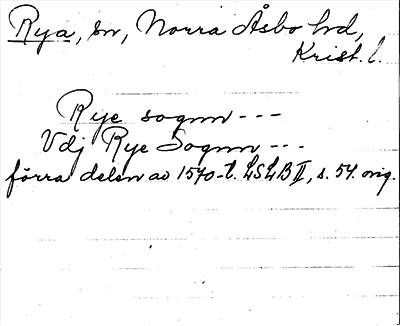 Rya, sn, Norra Åsbo hd,
Krist. l.
Rye sognn ---
Vdj Rye Sognn ---
förra delen av 1570-t. LSLB II, s. 54. orig.